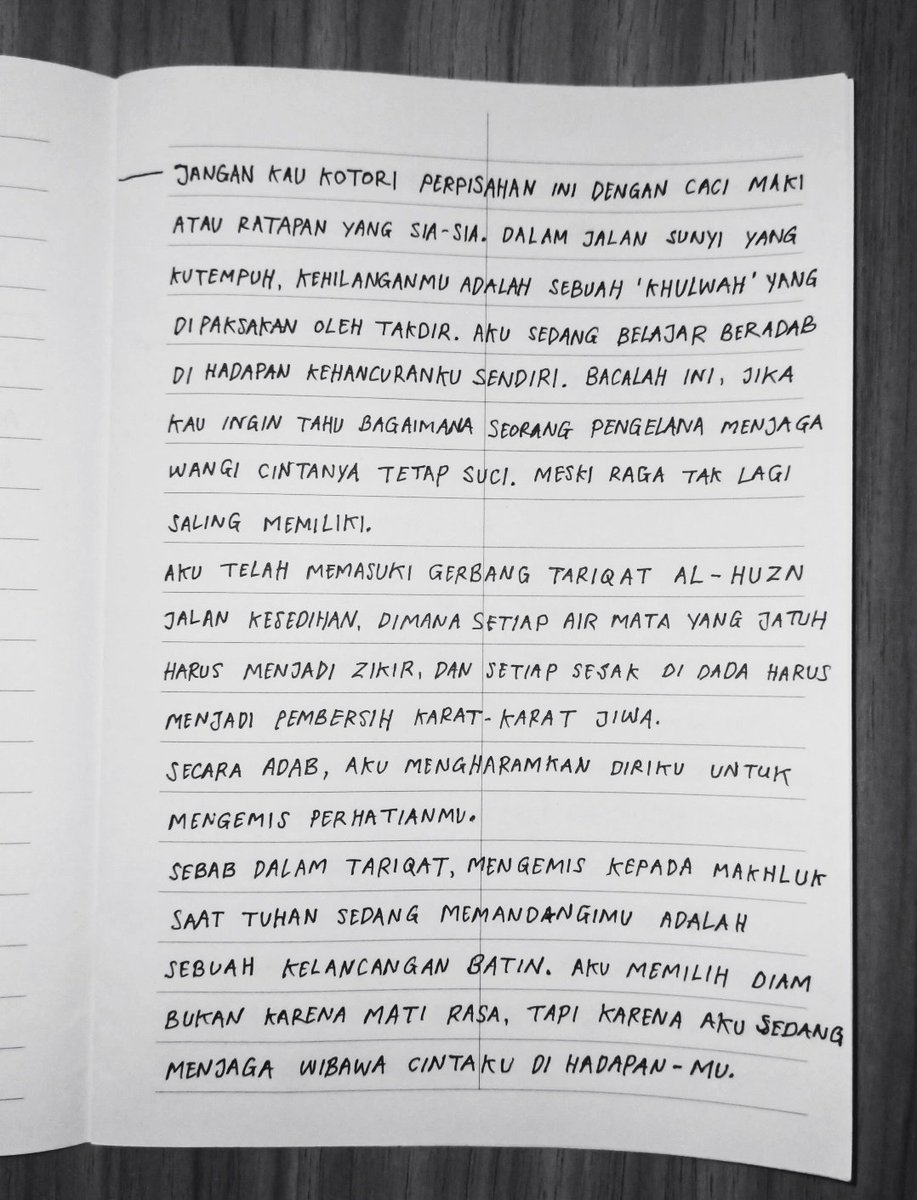 — JANGAN KAU KOTORI PERPISAHAN INI DENGAN CACI MAKI
ATAU RATAPAN YANG SIA-SIA. DALAM JALAN SUNYI YANG
KUTEMPUH, KEHILANGANMU ADALAH SEBUAH 'KHULWAH' YANG
DIPAKSAKAN OLEH TAKDIR. AKU SEDANG BELAJAR BERADAB
DI HADAPAN KEHANCURANKU SENDIRI. BACALAH INI, JIKA
KAU INGIN TAHU BAGAIMANA SEORANG PENGELANA MENJAGA
WANGI CINTANYA TETAP SUCI. MESKI RAGA TAK LAGI
SALING MEMILIKI.
AKU TELAH MEMASUKI GERBANG TARIQAT AL-HUZN
JALAN KESEDIHAN, DIMANA SETIAP AIR MATA YANG JATUH
HARUS MENJADI ZIKIR, DAN SETIAP SESAK DI DADA HARUS
MENJADI PEMBERSIH KARAT-KARAT JIWA.
SECARA ADAB, AKU MENGHARAMKAN DIRIKU UNTUK
MENGEMIS PERHATIANMU.
SEBAB DALAM TARIQAT, MENGEMIS KEPADA MAKHLUK
SAAT TUHAN SEDANG MEMANDANGIMU ADALAH
SEBUAH KELANCANGAN BATIN. AKU MEMILIH DIAM
BUKAN KARENA MATI RASA, TAPI KARENA AKU SEDANG
MENJAGA WIBAWA CINTAKU DI HADAPAN-MU.